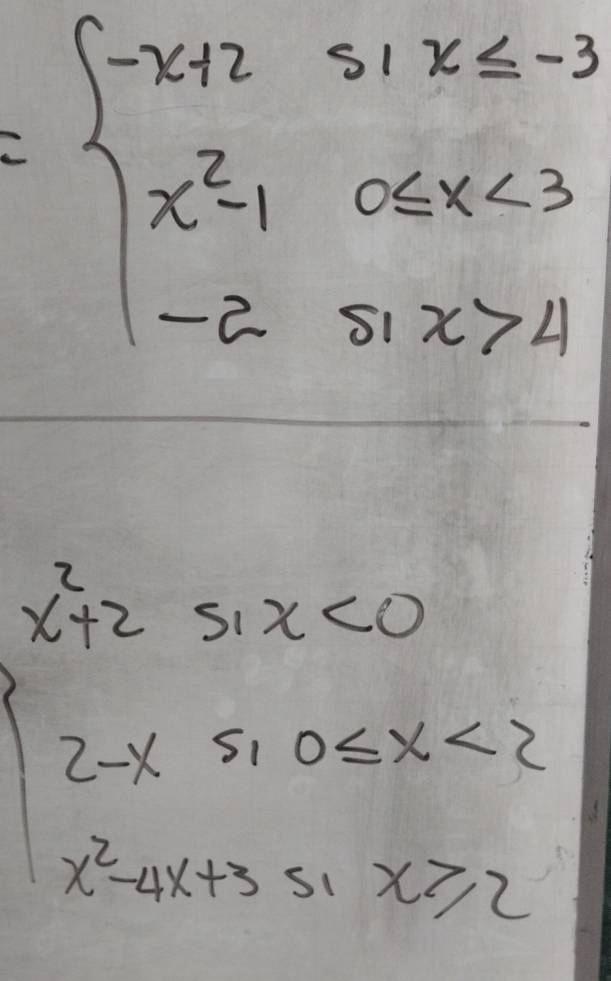 = { -x+2 si x ≤ -3
x²-1 0≤x<3
-2 si x>4
x²+2 si x<0
2-x si 0≤x<2
x²-4x+3 si x≥2